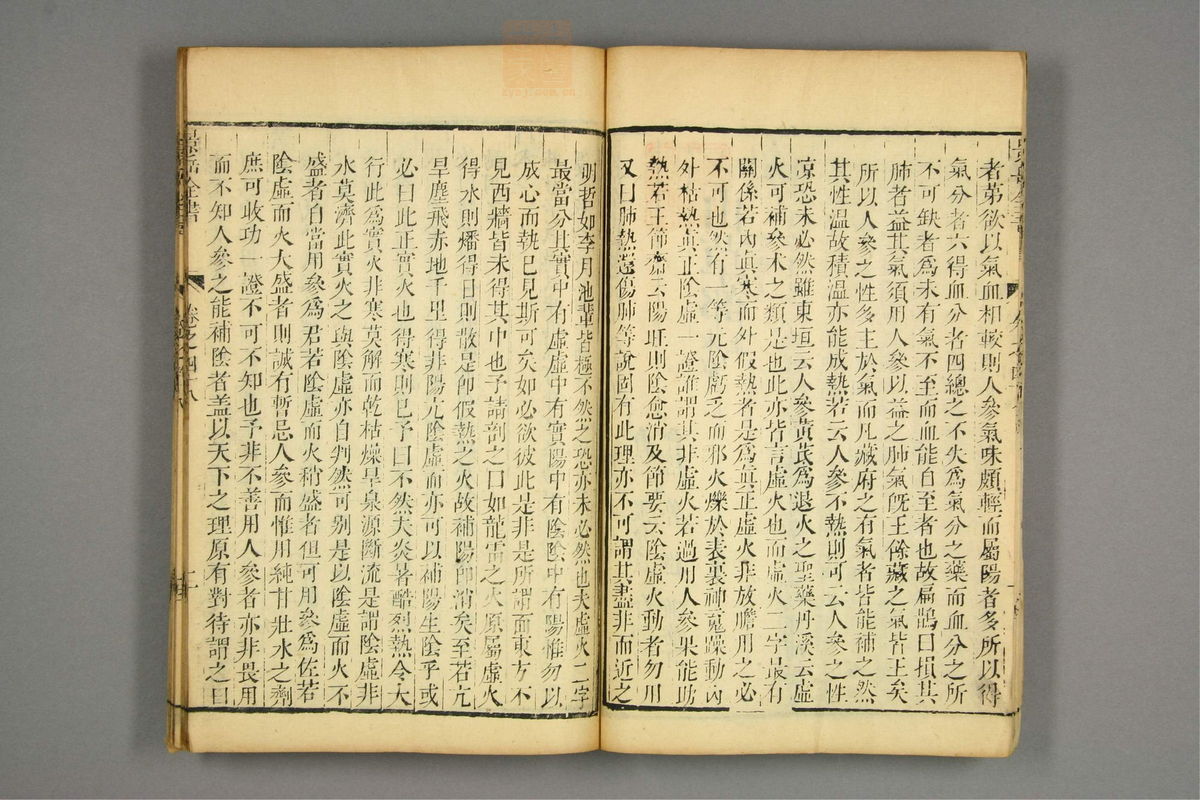 者第欲以氣血相較則人參氣味頗輕而屬陽者多所以得
氣分者六得血分者四總之不失為氣分之藥而血分之所
不可缺者為未有氣不至而血能自至者也故扁鵲曰損其
肺者益其氣須用人參以益之肺氣旣王餘臟之氣皆王矣
所以人參之性多主於氣而凡臟府之有氣者皆能補之然
其性溫故積溫亦能成熱若云人參不熱則可云人參之性
凉恐未必然雖東垣云人參黃芪為退火之聖藥丹溪云虛
火可補參术之類是也此亦皆言虛火也而虛火二字最有
關係若內眞寒而外假熱者是為眞正虛火非放膽用之必
不可也然有一等元陰虧乏而邪火爍於表裏神䰟躁動內
外枯熱眞正陰虛一證誰謂其非虛火若過用人參果能助
熱若王節齋云陽旺則陰愈消及節要云陰虛火動者勿用
又曰肺熱還傷肺等說固有此理亦不可謂其盡非而近之
明哲如李月池輩皆極不然之恐亦未必然也夫虛火二字
最當分其實中有虛虛中有實陽中有陰陰中有陽惟勿以
成心而執己見斯可矣如必欲彼此是非是所謂面東方不
見西牆皆未得其中也予請剖之曰如龍雷之火原屬虛火
得水則燔得日則散是卽假熱之火故補陽卽消矣至若亢
旱塵飛赤地千里得非陽亢陰虛而亦可以補陽生陰乎或
必曰此正實火也得寒則已予曰不然夫炎暑酷烈熱令大
行此為實火非寒莫解而乾枯燥旱泉源斷流是謂陰虛非
水莫濟此實火之與陰虛亦自判然可別是以陰虛而火不
盛者自當用參為君若陰虛而火稍盛者但可用參為佐若
陰虛而火大盛者則誠有暫忌人參而惟用純甘壯水之劑
庶可收功一證不可不知也予非不善用人參者亦非畏用
而不知人參之能補陰者盖以天下之理原有對待謂之曰
景岳全書 卷之四十八